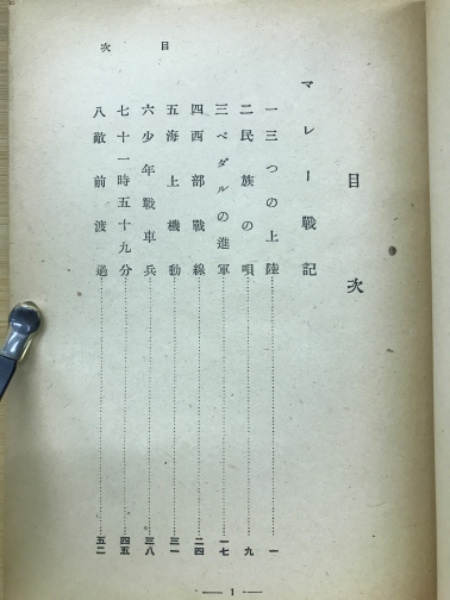 目次
目次
マレー戰記
一 三つの上陸……一
二 民族の唄……九
三 ペダルの進軍……一七
四 西部戰線……二四
五 海上機動……三一
六 少年戰車兵……三八
七 十一時五十九分……四五
八 敵前渡過……五二
— 1 —